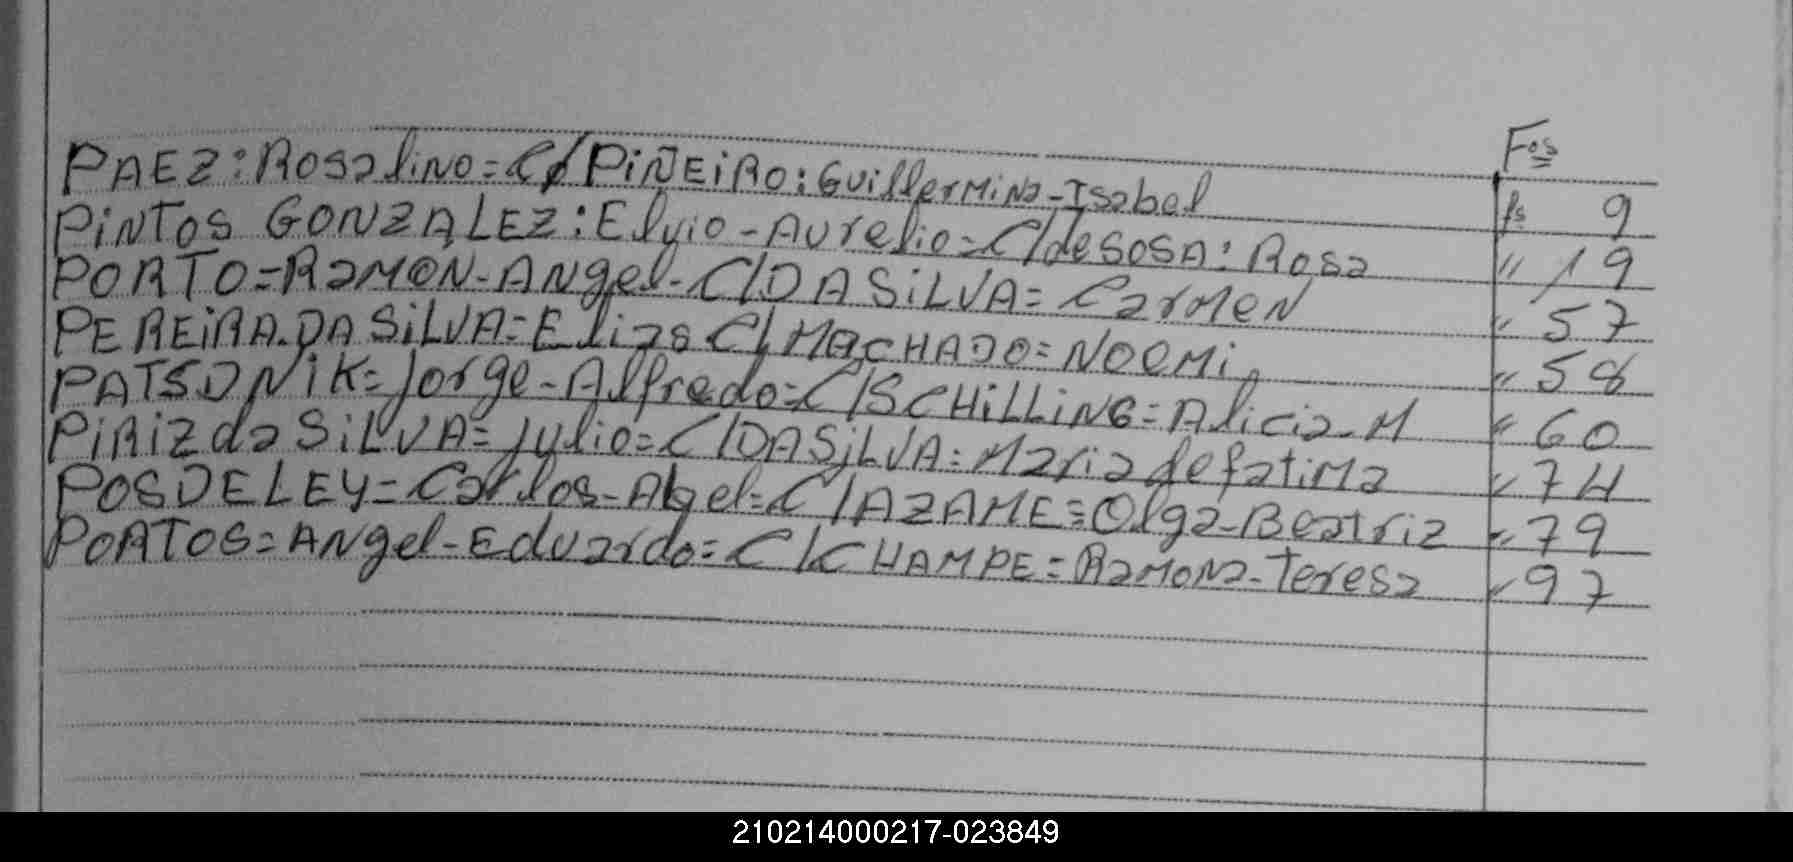 Fos
PAEZ: Rosalino = C/ PiÑEiRO: Guillermina-Isabel fs 9
PiNTOS GONZALEZ: Elvio-Aurelio = C/ de SOSA: Rosa " 19
PORTO = RAMON-Angel- C/ DA SiLVA = CarMeN " 57
PEREiRA. DA SiLVA = Elias C/ MACHADO = NOeMi " 58
PATSDNiK = Jorge-Alfredo = C/ SCHiLLiNG = Alicia-M " 60
PiRiZ da SiLVA = Julio = C/ DA SiLVA = Maria de fatiMa " 74
POSDELEY = Carlos-Abel = C/ AZAME = Olga-Beatriz " 79
PORTOS = Angel-Eduardo = C/ CHAMPE = RaMONa-Teresa " 97
210214000217-023849